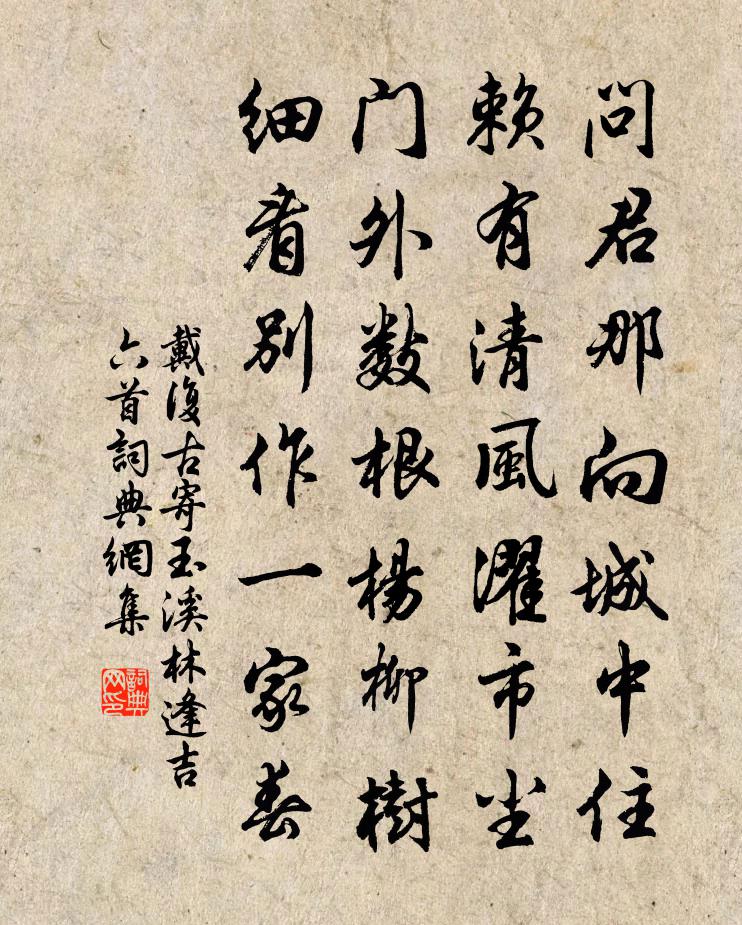 问君那向城中住
赖有清風濯市尘
门外数根楊柳樹
细看别作一家春
戴復古寄玉溪林逢吉
六首詞典網集
詞典
网印